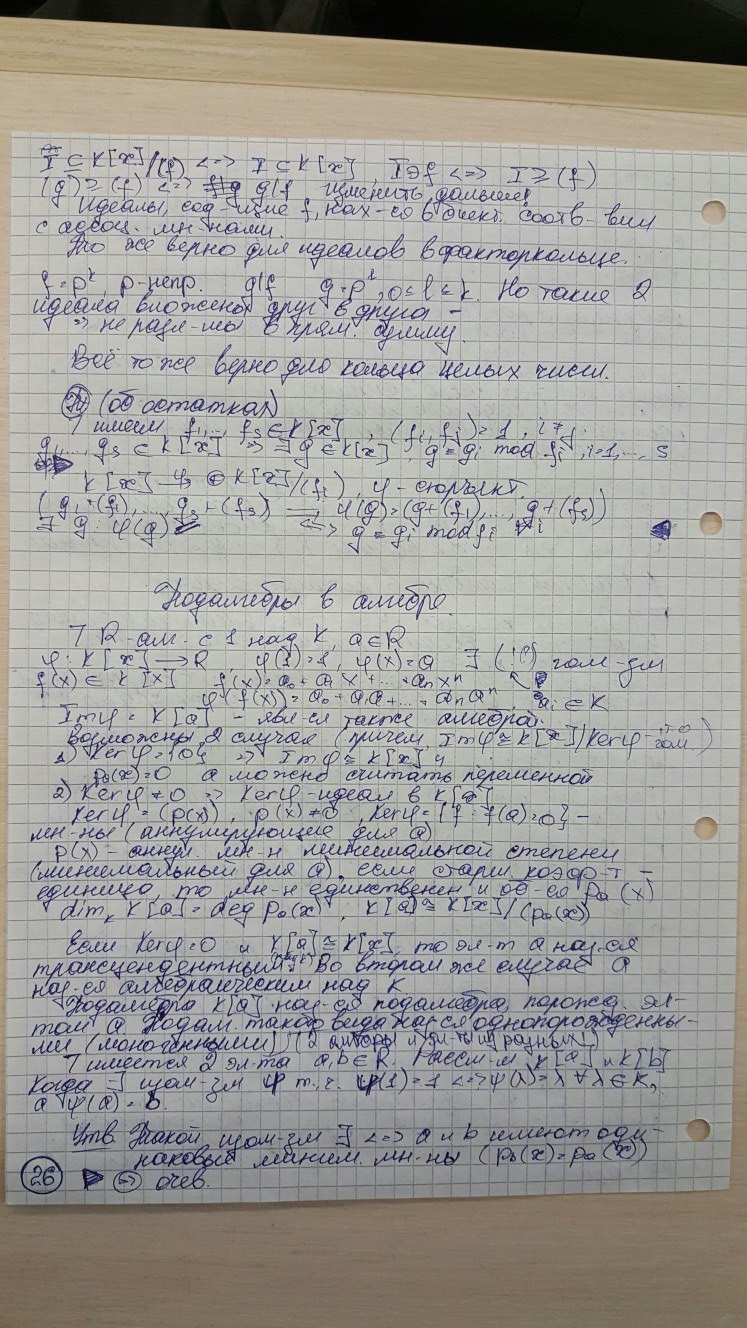 I ⊆ K[x]/(f) <=> I ⊂ K[x], I∋f <=> I ⊇ (f)
(g) ⊇ (f) <=> g|f изменить дальше!
Идеалы, сод-щие f, нах-ся в биект. соотв-вии
с ассоц. мн-нами.
То же верно для идеалов в факторкольце.
f=pᵏ, p-непр. g|f g=pˡ, 0≤l≤k. Но такие 2
идеала вложены друг в друга –
=> не разл-мы в прям. сумму.
Всё то же верно для кольца целых чисел.
(об остатках)
] имеем f₁,..., fₛ ∈ K[x], (fᵢ, fⱼ)=1, i≠j
g₁,..., gₛ ∈ K[x] => ∃ g ∈ K[x], g≡gᵢ mod fᵢ, i=1,..., s
K[x] →φ ⊕ K[x]/(fᵢ), φ-сюръект.
(g₁+(f₁),..., gₛ+(fₛ)) φ(g)=(g+(f₁),..., g+(fₛ))
∃ g: φ(g) <=> g≡gᵢ mod fᵢ ∀i
Подалгебры в алгебре.
] R-алг. с 1 над K, a∈R
φ: K[x] → R, φ(1)=1, φ(x)=a ∃ (!) гом-зм
f(x) ∈ K[x] f(x)=a₀+a₁x+...+aₙxⁿ
φ(f(x))=a₀+a₁a+...+aₙaⁿ, aᵢ∈K
Imφ = K[a] – явл-ся также алгеброй.
Возможны 2 случая (причем, Imφ≅K[x]/Kerφ
1) Kerφ={0} => Imφ≅K[x] и
pₐ(x)=0 a можно считать переменной
2) Kerφ≠0 => Kerφ-идеал в K[x]
Kerφ=(p(x)), p(x)≠0, Kerφ={f: f(a)=0} –
мн-ны (аннулирующие для a)
p(x) – аннул. мн-н минимальной степени
(минимальный для a), если старш. коэф-т –
единица, то мн-н единственен и об-ся pₐ(x)
dimₖ K[a]=deg pₐ(x), K[a]≅K[x]/(pₐ(x))
Если Kerφ=0 и K[a]≅K[x], то эл-т a наз-ся
трансцендентным. Во втором же случае a
наз-ся алгебраическим над K
Подалгебра K[a] наз-ся подалгебра, порожд. эл-
том a. Подалг. такого вида наз-ся однопорожденны-
ми (моногенными)
] имеется 2 эл-та a,b∈R. Рассм-м K[a] и K[b]
Когда ∃ изом-зм ψ т.ч. ψ(1)=1 <=> ψ(λ)=λ ∀λ∈K,
а ψ(a)=b.
Утв. Такой изом-зм ∃ <=> a и b имеют оди-
наковый миним. мн-ны (p_b(x)=pₐ(x))
26 ▶ (=>) очев.